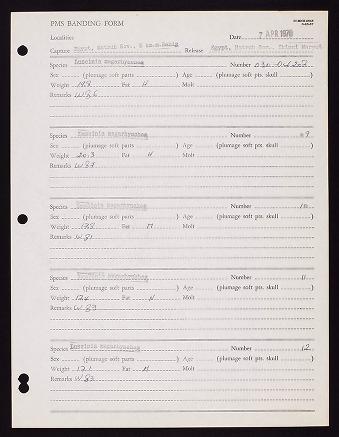 PMS BANDING FORM
Localities Date 7 APR 1970
Capture Egypt, Matruh Gov., Release Egypt, Matruh Gov.,
Species Luscinia megarhynchos Number 030-04208
Sex (plumage soft parts ) Age (plumage soft pts. skull )
Weight Fat N Molt
Remarks W 86
Species Luscinia megarhynchos Number 09
Sex (plumage soft parts ) Age (plumage soft pts. skull )
Weight 20.3 Fat N Molt
Remarks W 87
Species Luscinia megarhynchos Number 10
Sex (plumage soft parts ) Age (plumage soft pts. skull )
Weight Fat Molt
Remarks W 81
Species Luscinia megarhynchos Number 11
Sex (plumage soft parts ) Age (plumage soft pts. skull )
Weight Fat N Molt
Remarks W 89
Species Luscinia megarhynchos Number 12
Sex (plumage soft parts ) Age (plumage soft pts. skull )
Weight Fat N Molt
Remarks W 83